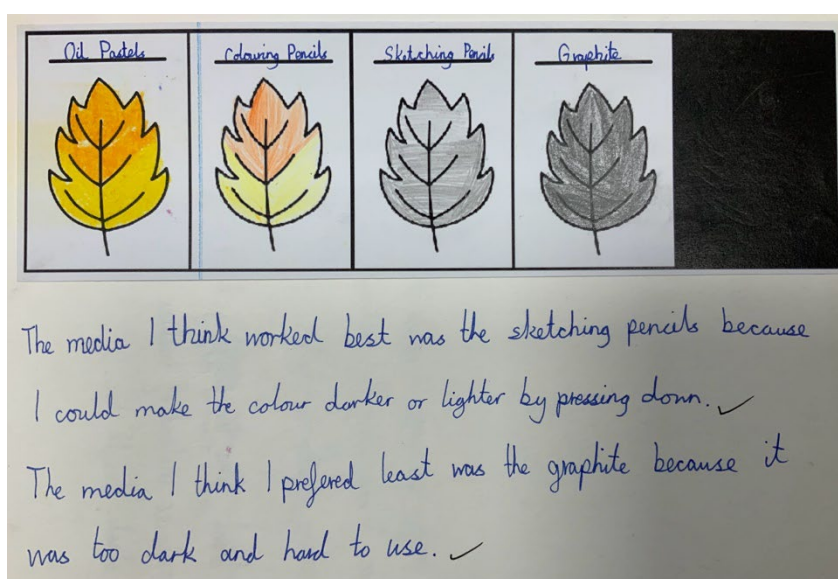 Oil Pastels Colouring Pencils Sketching Pencils Graphite
The media I think worked best was the sketching pencils because
I could make the colour darker or lighter by pressing down.
The media I think I prefered least was the graphite because it
was too dark and hard to use.